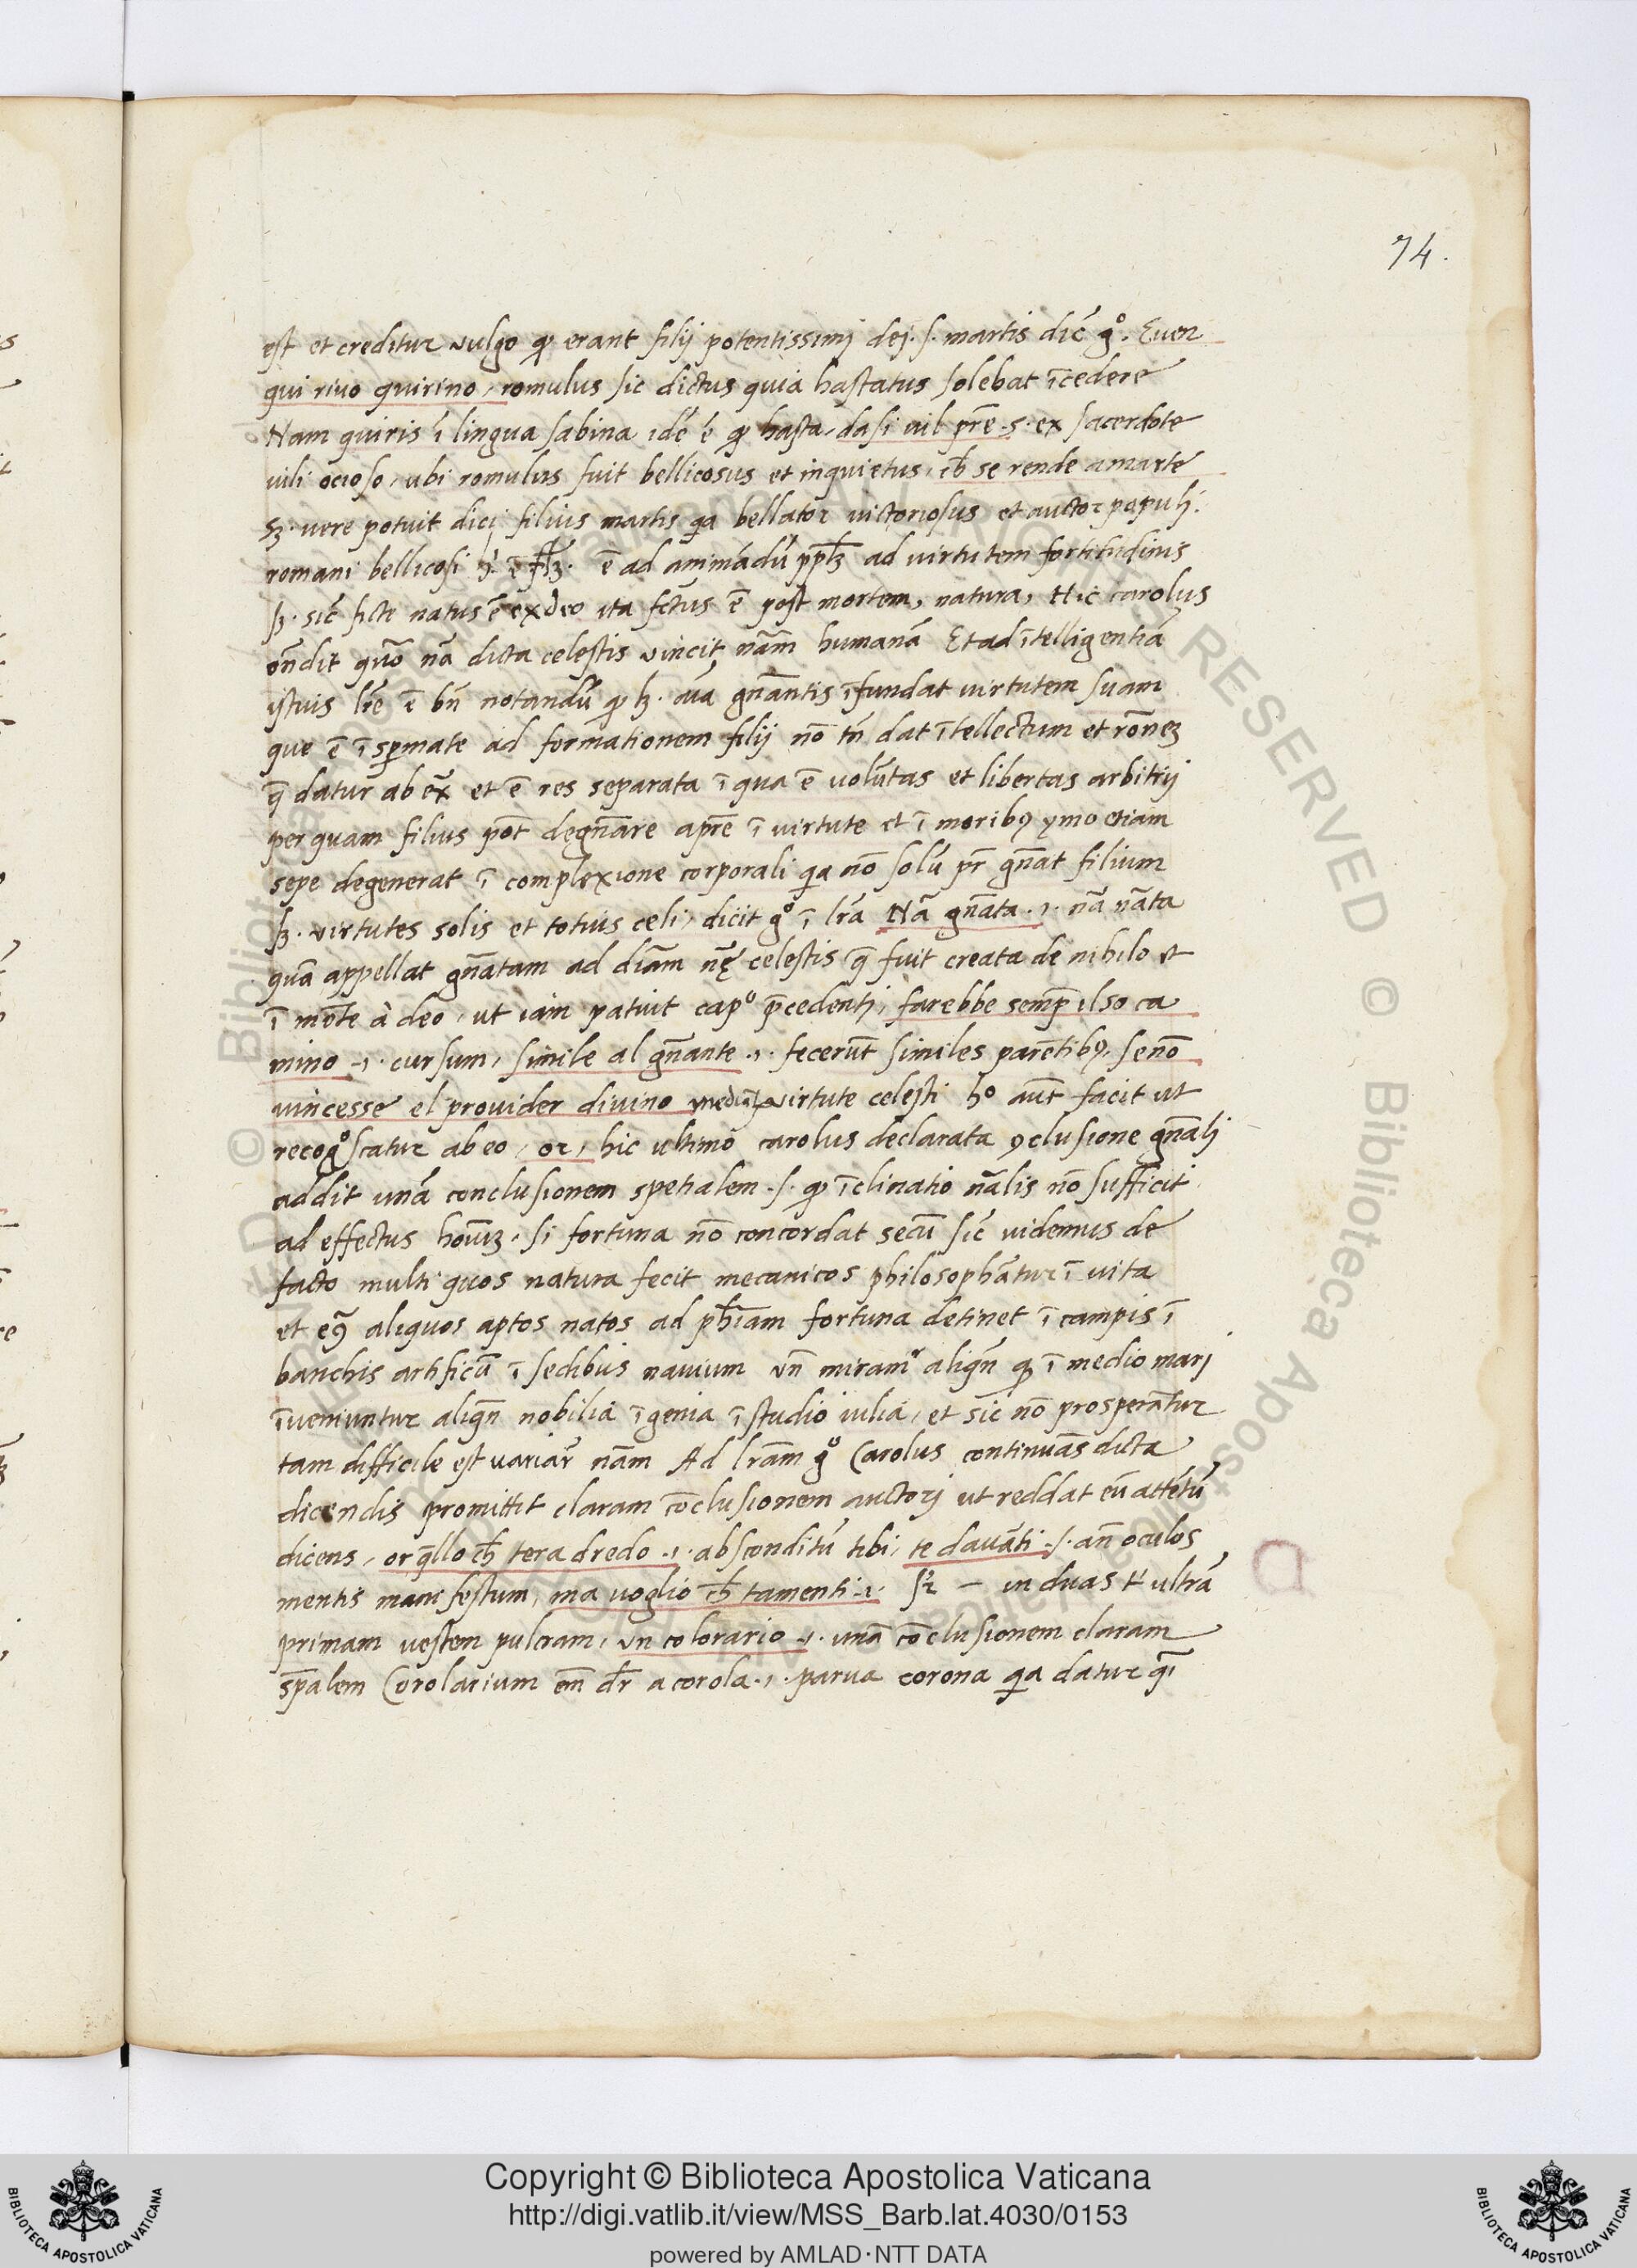 74.
est et creditur vulgo ꝙ erant filij potentissimj dej .s. martis dic̄ gͦ. Euen
qui riuo quirino, romulus sic dictus quia hastatus solebat īcedere
Nam quiris ī lingua sabina idē ē ꝙ hasta, da si uil pr̄e .s. ex sacerdote
uili ocioso, ubi romulus fuit bellicosus et inquietus, cħ se rende a marte
sꝫ. uere potuit dici filius martis qa bellator uictoriosus et auctor populi
romani bellicosi ē ad animādū ad virtutem fortitudinis
sꝫ. sic̄ ficte natus ē ex deo ita fctus ē post mortem, natura, Hic carolus
on̄dit quō nā dicta celestis vincit nām humanā Et ad ītelligentiā
istius lr̄e ē bn̄ notandū ꝙ gn̄antis īfundat virtutem suam
que ē ī spermate ad formationem filij nō tn̄ dat ītellectum et rōnem
q̄ datur ab ex̄ et ē res separata ī qua ē volūtas et libertas arbitrij
per quam filius pōt degn̄are a pr̄e ī virtute et ī moribꝯ ymo etiam
sepe degenerat ī complexione corporali qa nō solū pr̄ gn̄at filium
sꝫ. virtutes solis et totius celi, dicit gͦ ī lr̄a Nā gn̄ata .i. nā nāta
quā appellat gn̄atam ad diām nę̄ celestis q̄ fuit creata de nihilo et
ī mōte à deo, ut iam patuit capͦ p̄cedenti, farebbe semp̄ il so ca
mino .i. cursum, simile al gn̄ante .i. fecerūt similes parētibꝯ, se nō
uincesse el prouider diuino mediāte virtute celesti hͦ aūt facit ut
recogͦscatur ab eo, or, hic ultimō carolus declarata ꝯclusione gn̄ali
addit unā conclusionem spetialem .s. ꝙ īclinatio nālis nō sufficit
ad effectus hoīuꝫ, si fortuna nō concordat secū sic̄ uidemus de
facto multi quos natura fecit mecanicos philosophātur ī uita
et eꝯ̄ aliquos aptos natos ad pħiam fortuna detinet ī campis ī
banchis artificū ī sedibus nauium vn̄ miramʳ aliqn̄ ꝙ ī medio mari
īueniuntur aliqn̄ nobilia īgenia ī studio iulia, et sic nō prosperātur
tam difficile est uariar̄ nām Ad lr̄am gͦ Carolus continuās dicta
dicendis promittit claram cōclusionem auctorj ut reddat eū attētū
dicens, or q̄llo cħ tera dredo .i. absconditū tibi, te dauāti .s. an̄ oculos
mentis manifestum, ma uoglio cħ tamenti .i. in duas ultrā
primam uestem pulcram, vn colorario .i. unā cōclusionem claram
sp̄alem Corolarium em̄ dr̄ a corola .i. parua corona qa datur qī
Copyright © Biblioteca Apostolica Vaticana
http://digi.vatlib.it/view/MSS_Barb.lat.4030/0153
powered by AMLAD·NTT DATA
BIBLIOTECA APOSTOLICA VATICANA
BIBLIOTECA APOSTOLICA VATICANA